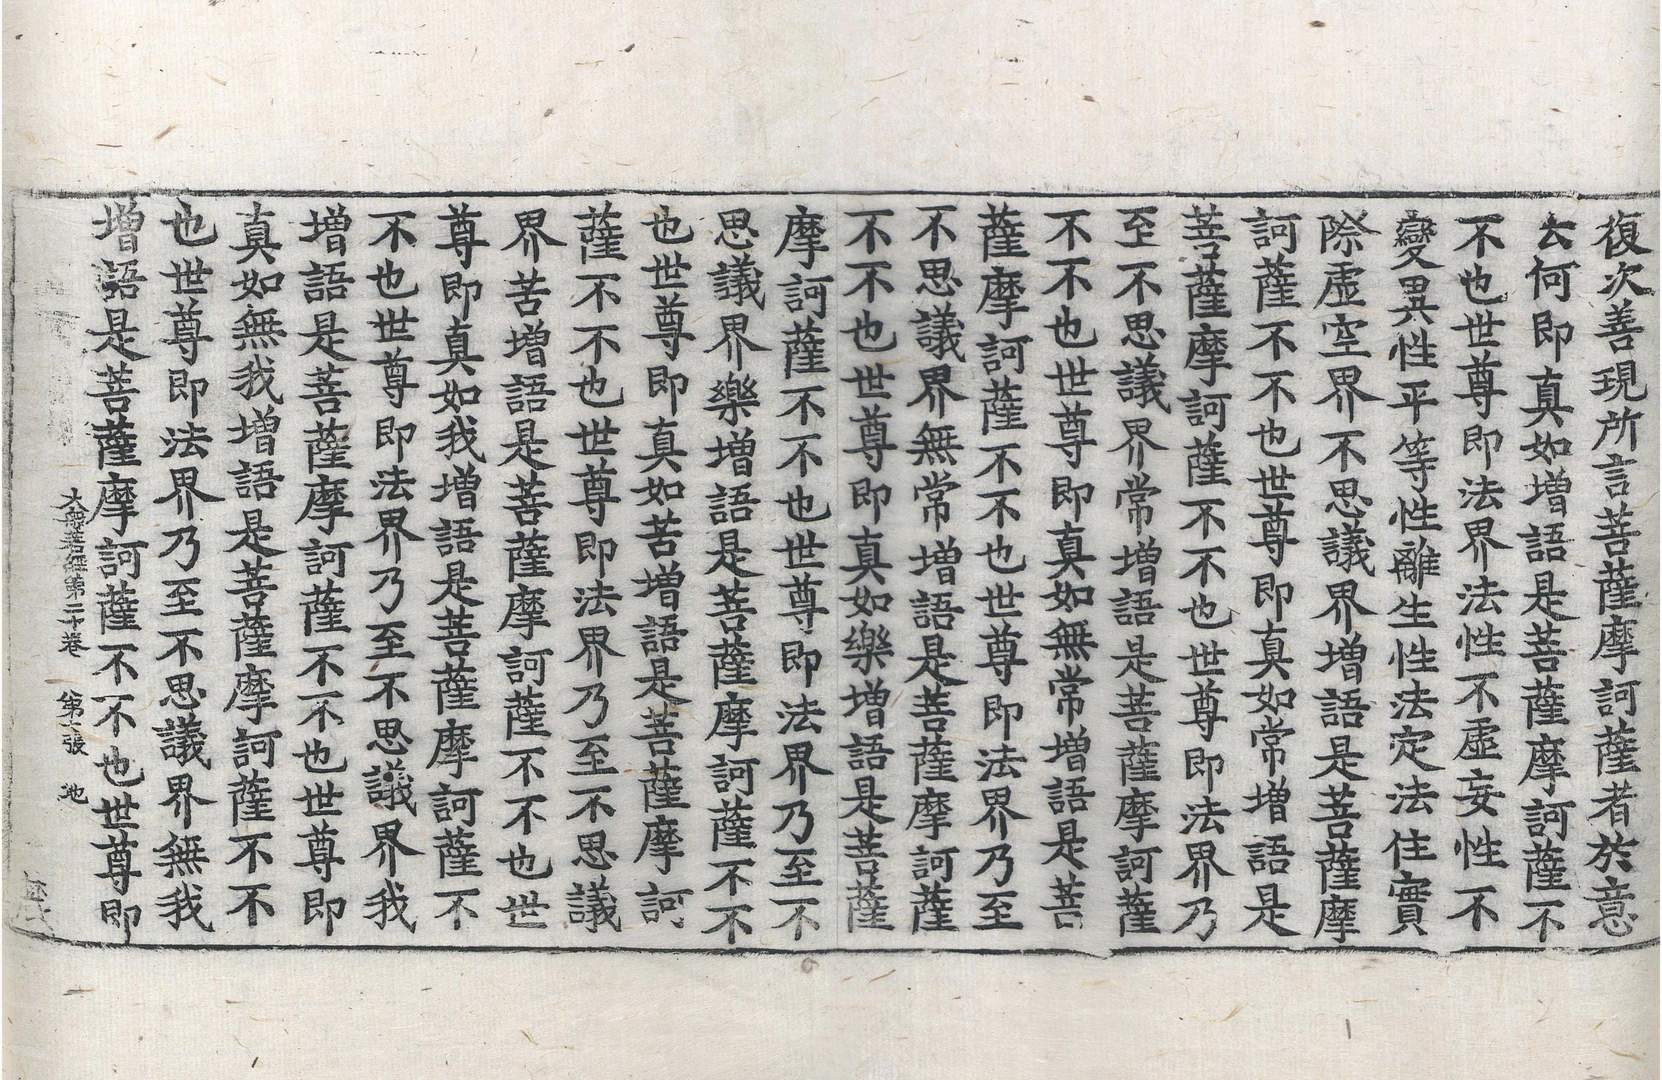 復次善現所言菩薩摩訶薩者於意
云何即真如增語是菩薩摩訶薩不
不也世尊即法界法性不虛妄性不
變異性平等性離生性法定法住實
際虛空界不思議界增語是菩薩摩
訶薩不不也世尊即真如常增語是
菩薩摩訶薩不不也世尊即法界乃
至不思議界常增語是菩薩摩訶薩
不不也世尊即真如無常增語是菩
薩摩訶薩不不也世尊即法界乃至
不思議界無常增語是菩薩摩訶薩
不不也世尊即真如樂增語是菩薩
摩訶薩不不也世尊即法界乃至不
思議界樂增語是菩薩摩訶薩不不
也世尊即真如苦增語是菩薩摩訶
薩不不也世尊即法界乃至不思議
界苦增語是菩薩摩訶薩不不也世
尊即真如我增語是菩薩摩訶薩不
不也世尊即法界乃至不思議界我
增語是菩薩摩訶薩不不也世尊即
真如無我增語是菩薩摩訶薩不不
也世尊即法界乃至不思議界無我
增語是菩薩摩訶薩不不也世尊即
大般若經第二十卷 第 張 地